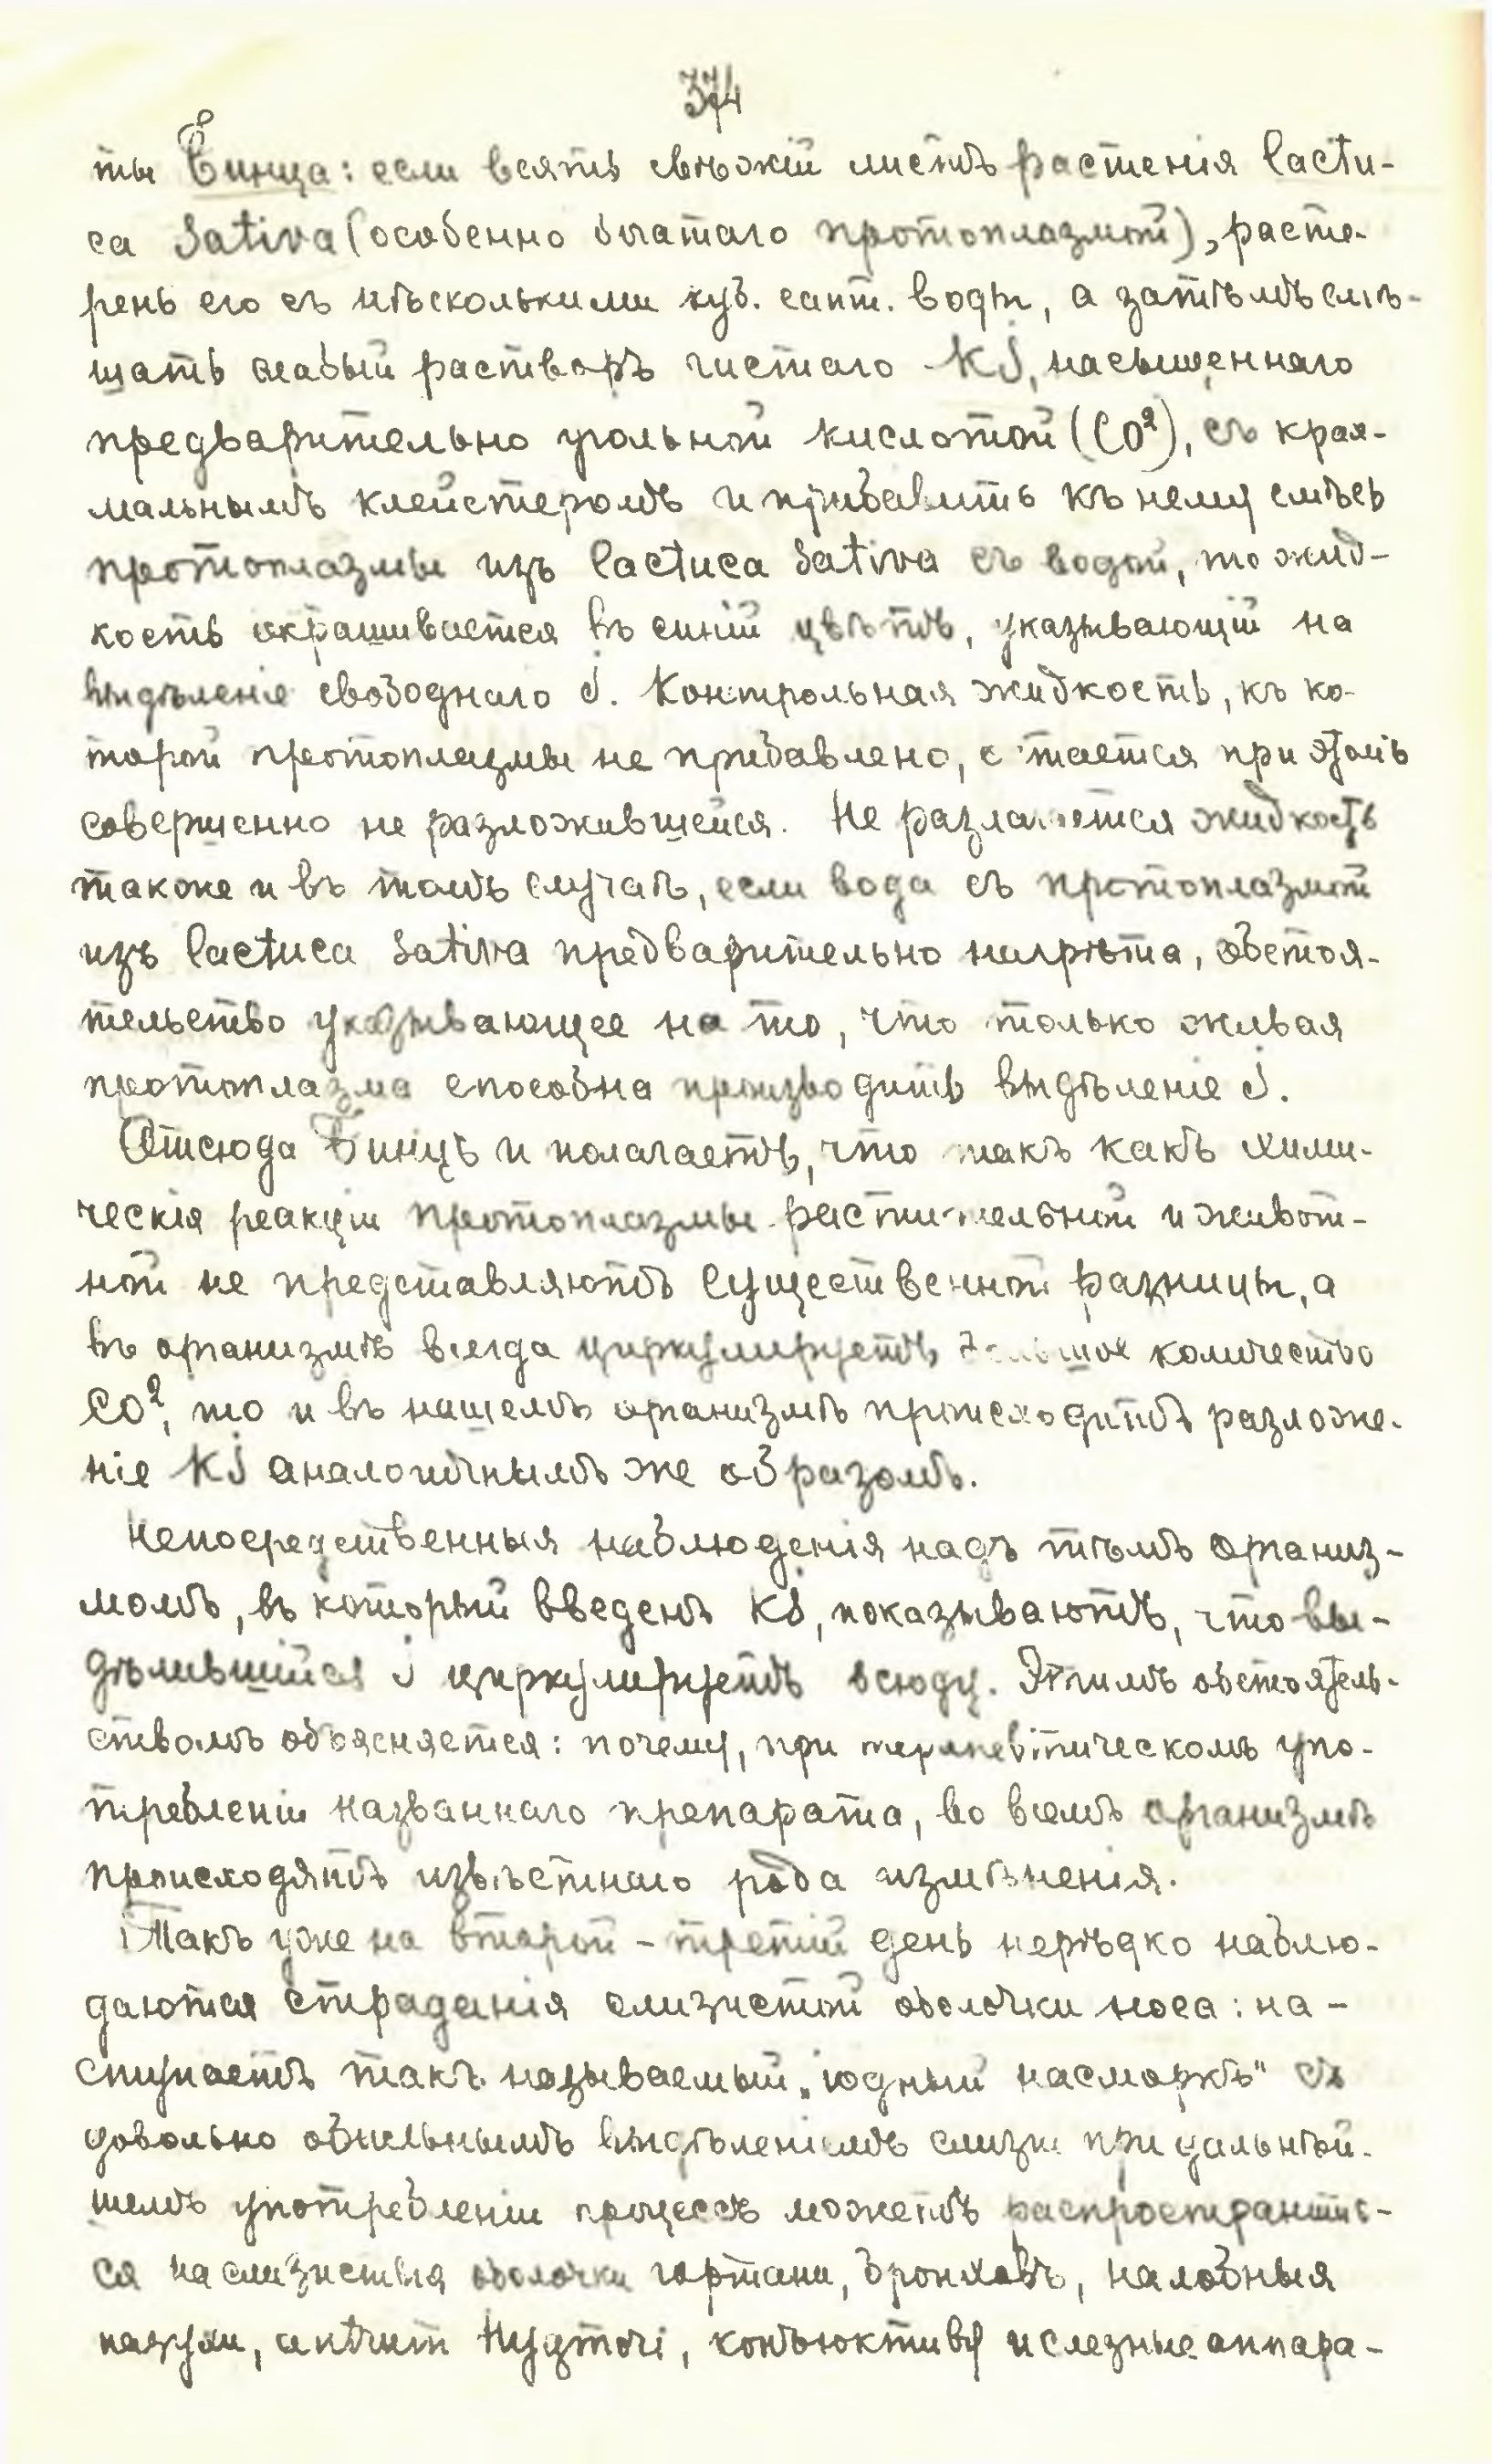 374
ты Бинца: если взять свѣжій листъ растенія lactu-
ca sativa (особенно богатаго протоплазмой), расте-
рень его съ нѣсколькими куб. сант. воды, а затѣмъ смѣ-
шать слабый растворъ чистаго KJ, насыщеннаго
предварительно угольной кислотой (CO²), съ крах-
мальнымъ клейстеромъ и прибавить къ нему смѣсь
протоплазмы изъ lactuca sativa съ водой, то жид-
кость окрашивается въ синій цвѣтъ, указывающій на
выдѣленіе свободнаго J. Контрольная жидкость, къ ко-
торой протоплазмы не прибавлено, остается при этомъ
совершенно не разложившейся. Не разлагается жидкость
также и въ томъ случаѣ, если вода съ протоплазмой
изъ lactuca sativa предварительно нагрѣта, обстоя-
тельство указывающее на то, что только живая
протоплазма способна производить выдѣленіе J.
Отсюда Бинцъ и полагаетъ, что такъ какъ хими-
ческія реакціи протоплазмы растительной и живот-
ной не представляютъ существенной разницы, а
въ организмѣ всегда циркулируетъ большое количество
CO², то и въ нашемъ организмѣ происходитъ разложе-
ніе KJ аналогичнымъ же образомъ.
Непосредственныя наблюденія надъ тѣмъ организ-
момъ, въ который введенъ KJ, показываютъ, что вы-
дѣлившійся J циркулируетъ всюду. Этимъ обстоятель-
ствомъ объясняется: почему, при терапевтическомъ упо-
требленіи названнаго препарата, во всемъ организмѣ
происходятъ извѣстнаго рода измѣненія.
Такъ уже на второй - третій день нерѣдко наблю-
даются страданія слизистой оболочки носа: на-
ступаетъ такъ называемый „іодный насморкъ" съ
довольно обильнымъ выдѣленіемъ слизи при дальнѣй-
шемъ употребленіи процессъ можетъ распространить-
ся на слизистыя оболочки гортани, бронховъ, на лобныя
пазухи, antrum Hygmori, конъюктиву и слезные аппара-